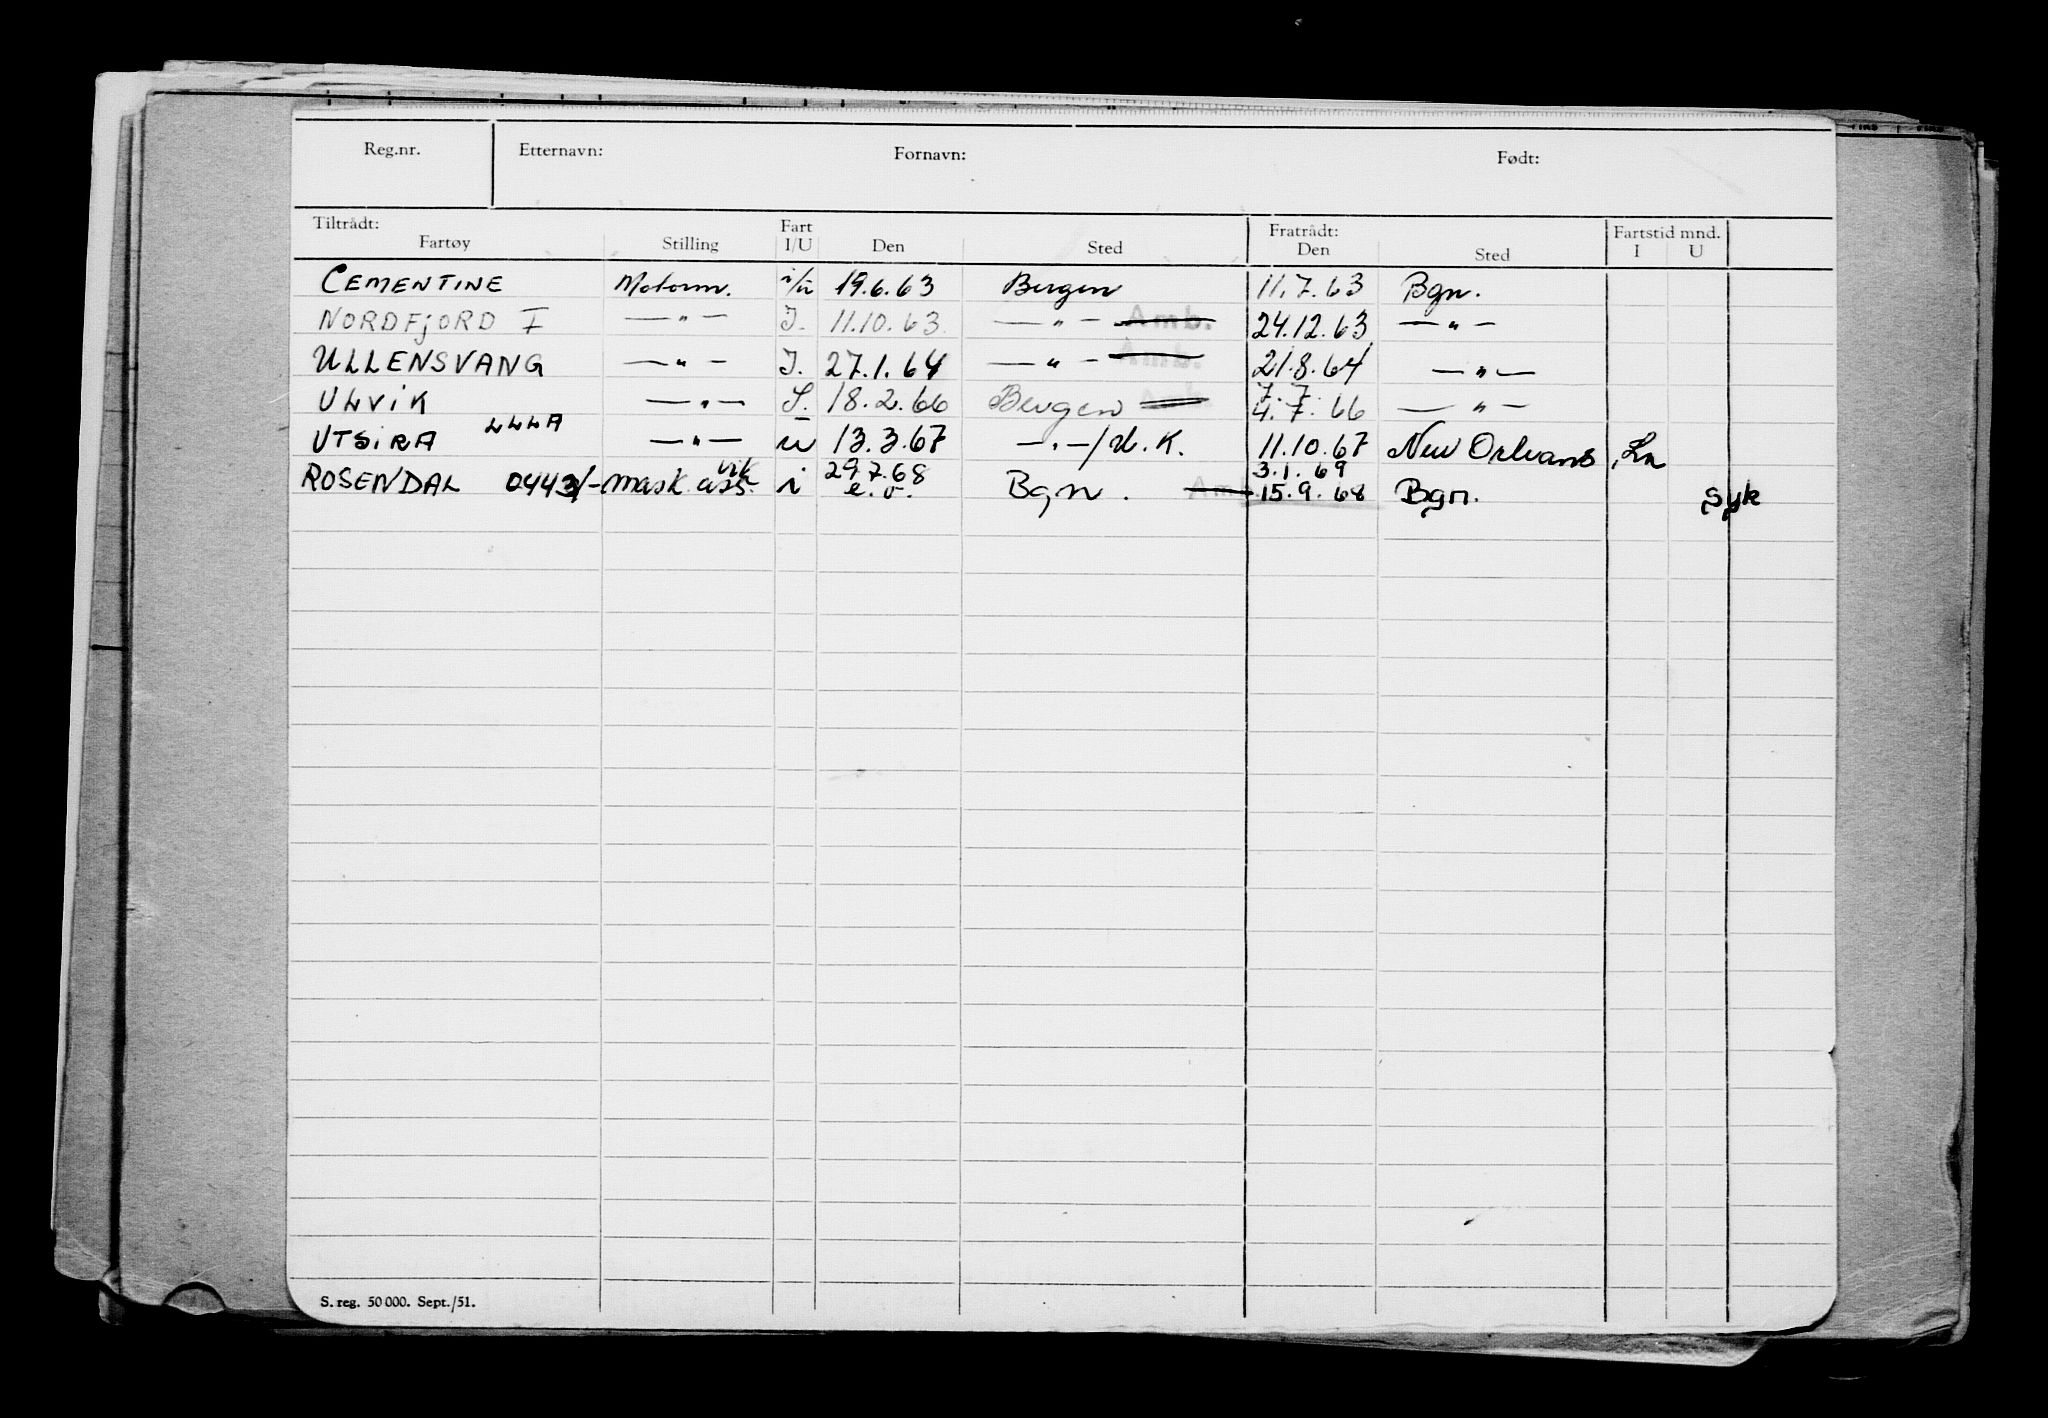 Reg.nr. Etternavn: Fornavn: Født:
Tiltrådt: Fart Fratrådt: Fartstid mnd.
Fartøy Stilling I/U Den Sted Den Sted I U
CEMENTINE Motorm. i/u 19.6.63 Bergen 11.7.63 Bgn.
NORDFJORD I —"— I. 11.10.63 —"— Amb. 24.12.63 —"—
ULLENSVANG —"— I. 27.1.64 —"— Amb. 21.8.64 —"—
7.7.
ULVIK —"— 18.2.66 Bergen 4.7.66 —"—
LLLA
UTSIRA —"— u 13.3.67 —"—/U.K. 11.10.67 New Orleans, La
vik 29.7.68 3.1.69
ROSENDAL 0443/- mask. ass. i e.o. Bgn. Amb. 15.9.68 Bgn. Syk
S. reg. 50 000. Sept./51.